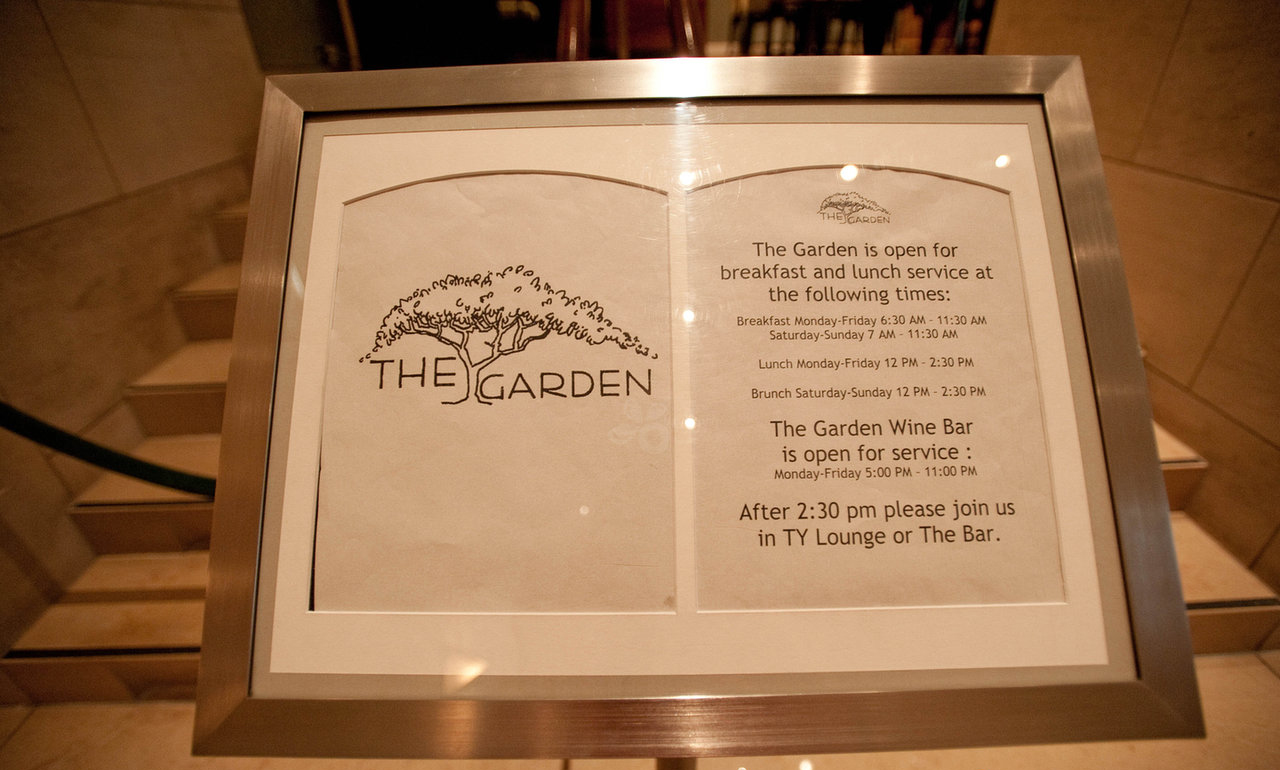 THE GARDEN
THE GARDEN
The Garden is open for
breakfast and lunch service at
the following times:
Breakfast Monday-Friday 6:30 AM - 11:30 AM
Saturday-Sunday 7 AM - 11:30 AM
Lunch Monday-Friday 12 PM - 2:30 PM
Brunch Saturday-Sunday 12 PM - 2:30 PM
The Garden Wine Bar
is open for service :
Monday-Friday 5:00 PM - 11:00 PM
After 2:30 pm please join us
in TY Lounge or The Bar.